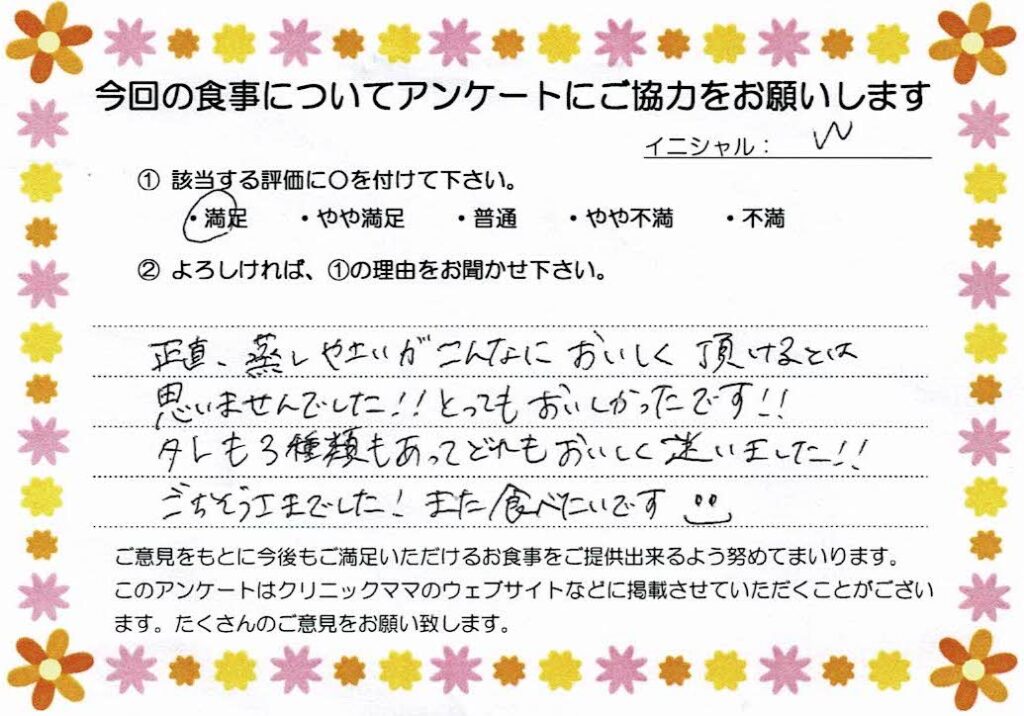 今回の食事についてアンケートにご協力をお願いします
イニシャル：
① 該当する評価に○を付けて下さい。
・満足 ・やや満足 ・普通 ・やや不満 ・不満
② よろしければ、①の理由をお聞かせ下さい。
正直、蒸しやさいがこんなにおいしく頂けるとは
思いませんでした!!とってもおいしかったです!!
タレも3種類もあってどれもおいしく迷いました!!
ごちそうさまでした！また食べたいです
ご意見をもとに今後もご満足いただけるお食事をご提供出来るよう努めてまいります。
このアンケートはクリニックママのウェブサイトなどに掲載させていただくことがござい
ます。たくさんのご意見をお願い致します。